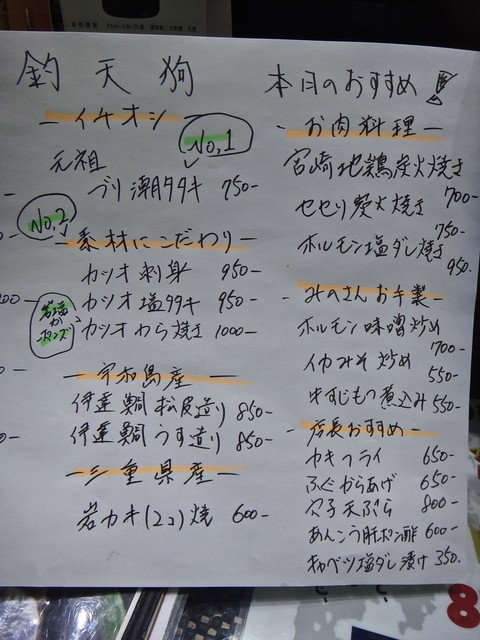 釣天狗
本日のおすすめ!
ーイチオシー
No,1
元祖
ブリ潮タタキ 750-
No,2
ー素材にこだわりー
カツオ刺身 950-
カツオ塩タタキ 950-
岩塩かポン酢
カツオわら焼き 1000-
ー宇和島産ー
伊達鯛松皮造り 850-
伊達鯛うす造り 850-
ー三重県産ー
岩カキ(2コ)焼 600-
ーお肉料理ー
宮崎地鶏炭火焼き
700-
セセリ炭火焼き
750-
ホルモン塩ダレ焼き
950-
ーみのさんお手製ー
ホルモン味噌炒め
700-
イカみそ炒め
550-
牛すじもつ煮込み 550-
ー店長おすすめー
カキフライ 650-
ふぐからあげ 650-
穴子天ぷら 800-
あんこう肝ポン酢 600-
キャベツ塩ダレ漬け 350-
8